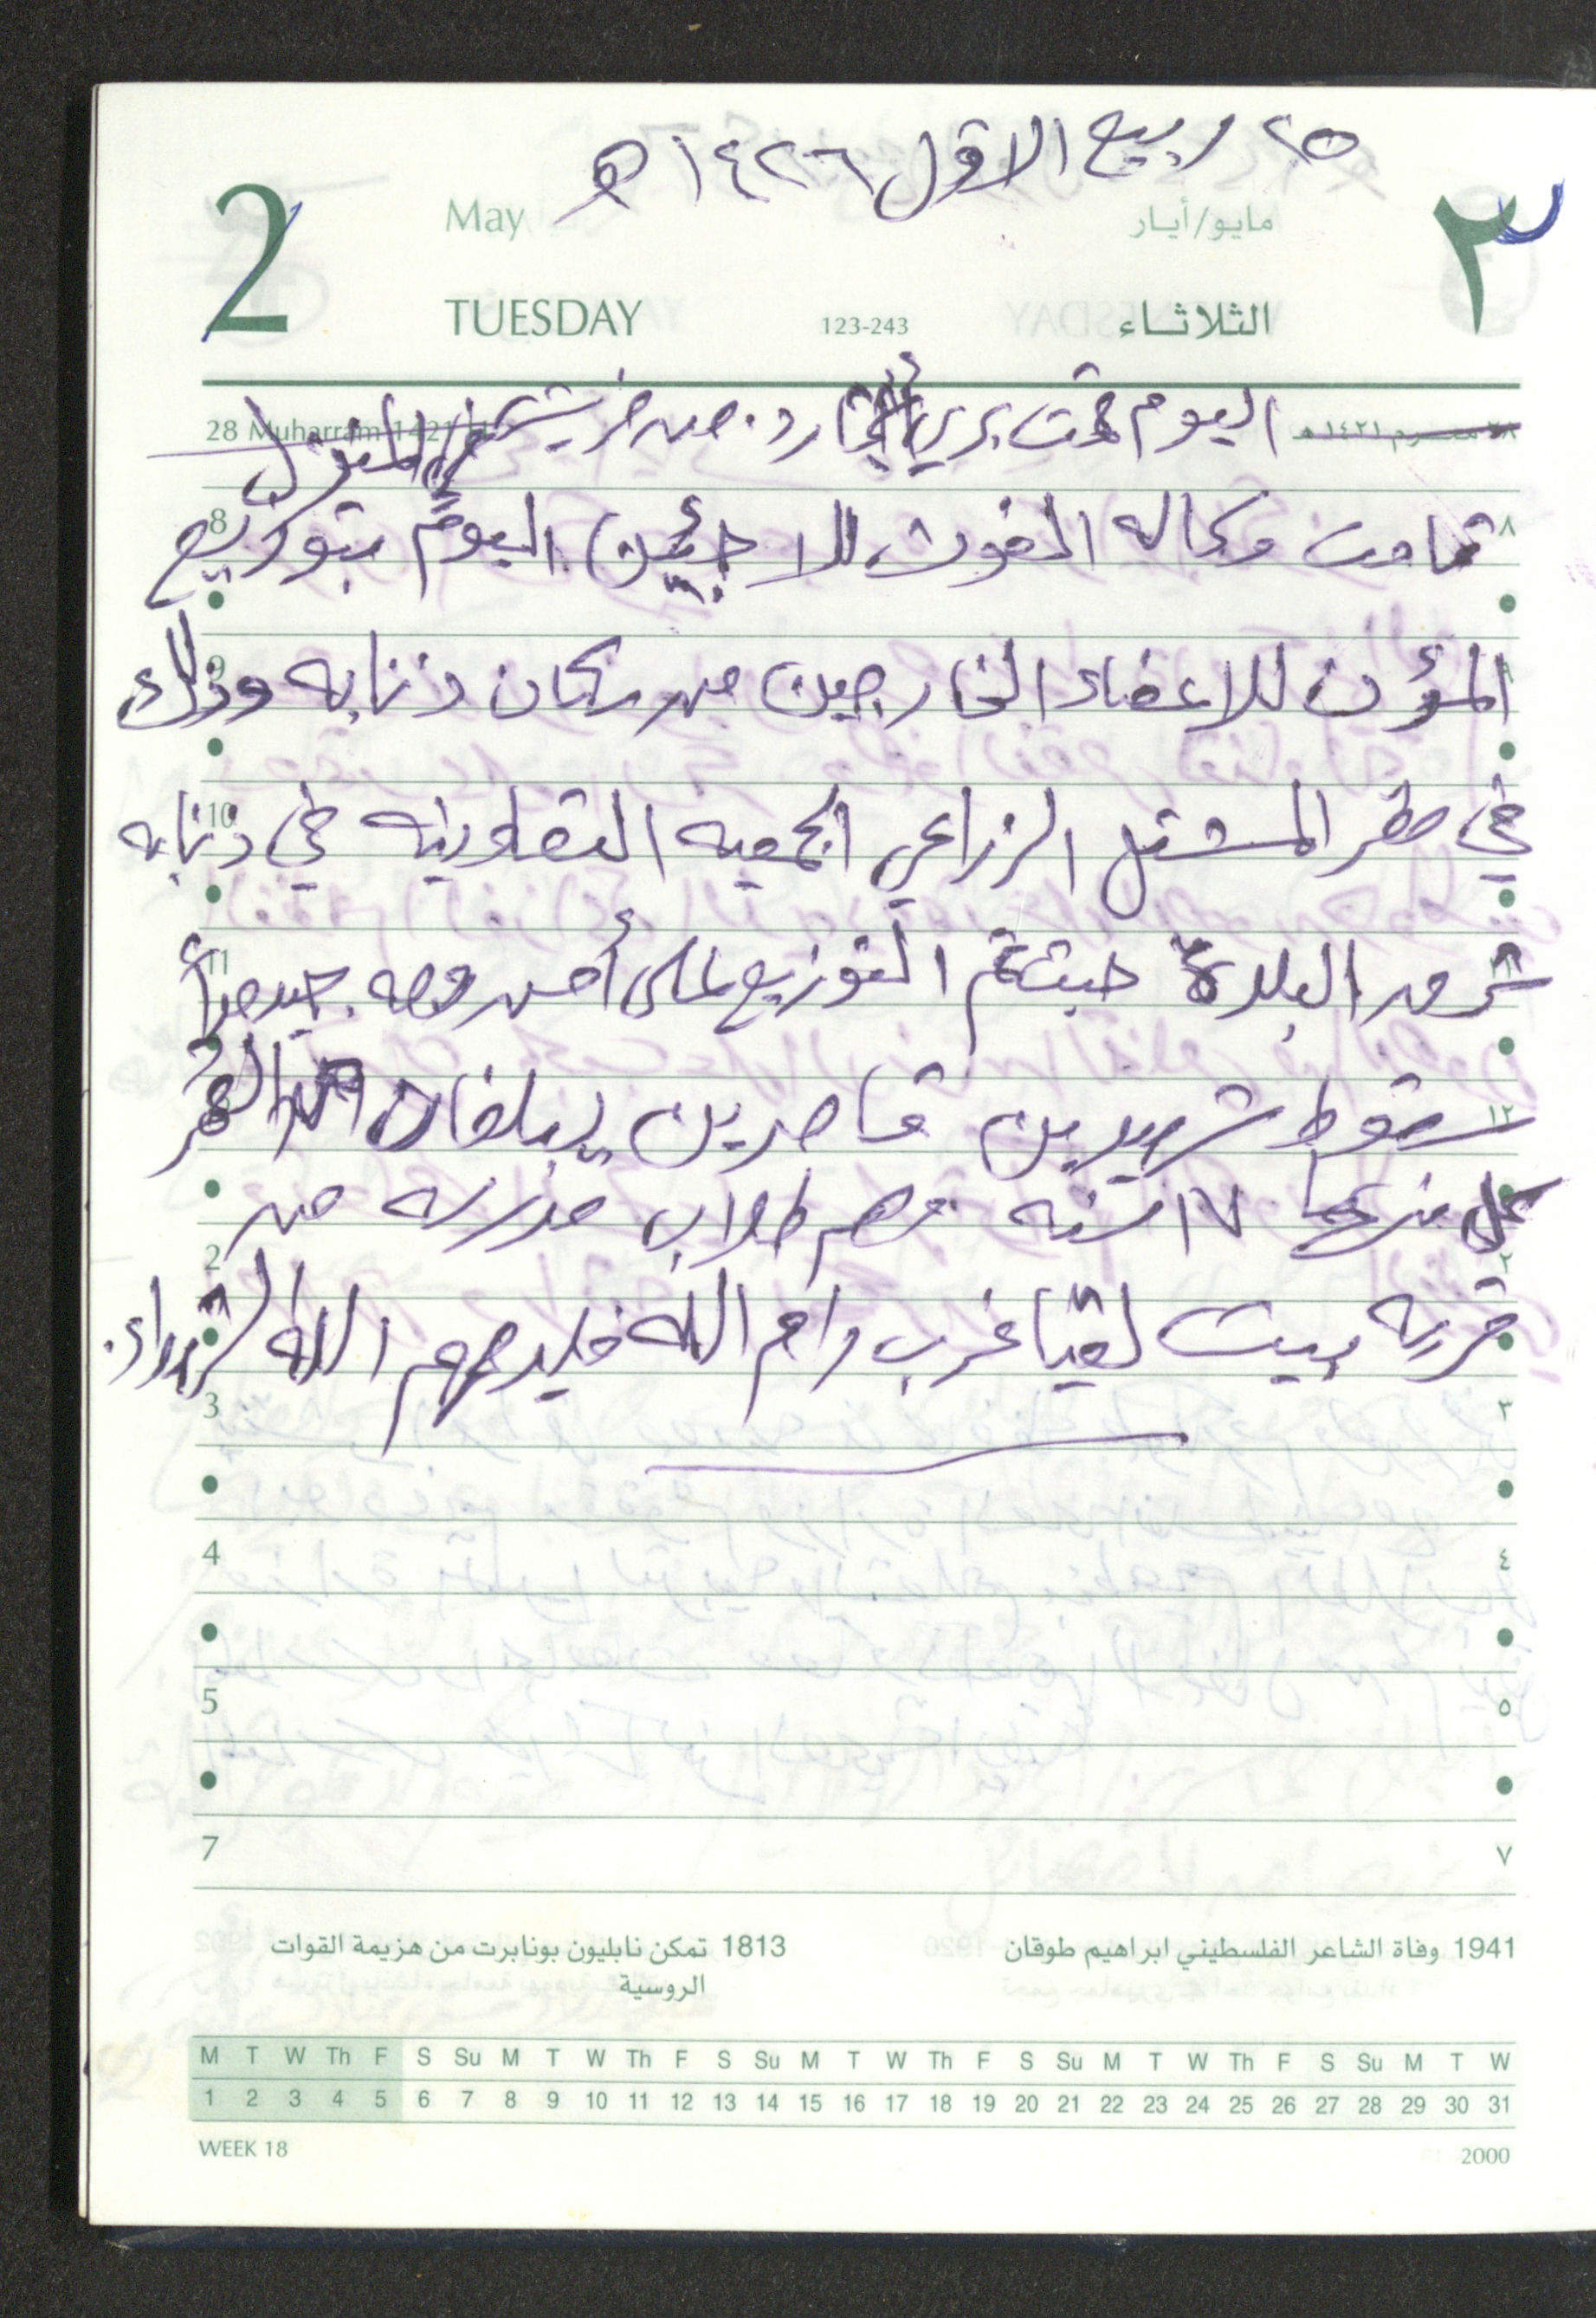 ٢٥ ربيع الاول ١٤٢٦ هـ
2 May مايو/أيار ٣
TUESDAY 123-243 الثلاثاء
28 Muharram 1421 ٢٨ محرم ١٤٢١ هـ
اليوم قمت بري من المنزل
8 قامت وكاله الغوث للاجئين اليوم بتوزيع ٨
المؤن للاعضاء الخارجين من سكان ذنابه وذلك
9
في مقر المشتل الزراعي الجمعيه التعاونيه في ذنابه
10
شرق البلدة حيث تم التوزيع على أحسن وجه
11
سقوط شهيدين قاصرين يبلغان العمر ١٢
كل منهما ١٧ سنه وهم طلاب مدرسه من
2 ٢
قريه بيت لقيا غرب رام الله فليرحمهم الله الشهداء.
3 ٣
4 ٤
5 ٥
7 ٧
1941 وفاة الشاعر الفلسطيني ابراهيم طوقان
1813 تمكن نابليون بونابرت من هزيمة القوات
الروسية
M T W Th F S Su M T W Th F S Su M T W Th F S Su M T W Th F S Su M T W
1 2 3 4 5 6 7 8 9 10 11 12 13 14 15 16 17 18 19 20 21 22 23 24 25 26 27 28 29 30 31
WEEK 18 2000